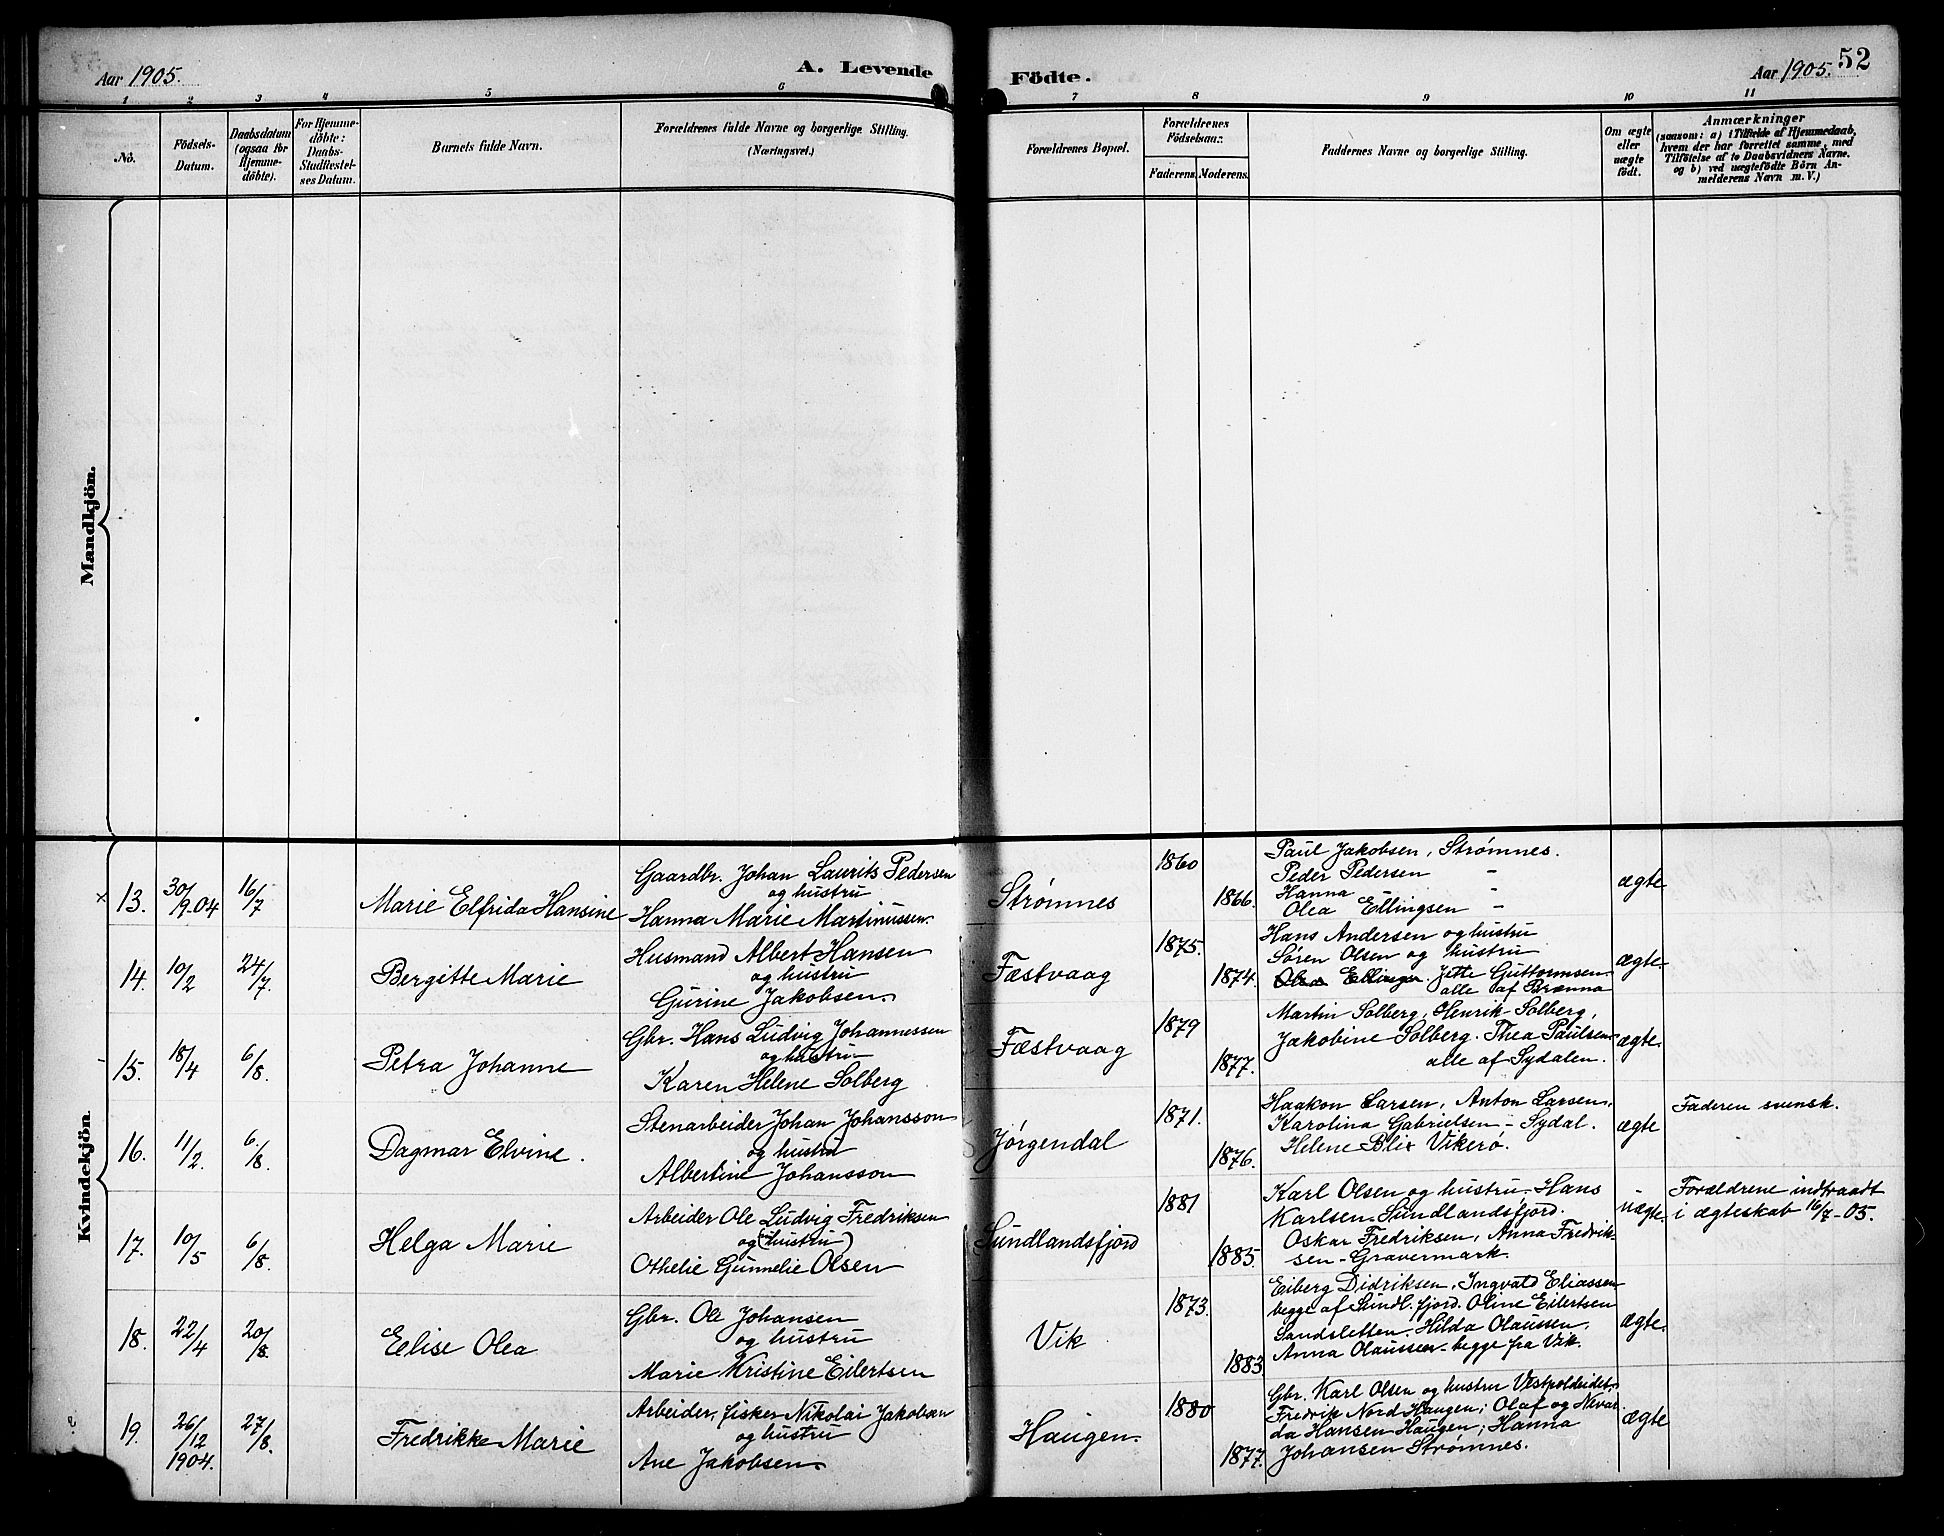 Aar 1905.
A. Levende
Födte.
Aar 1905.
52
1
2
3
4
5
6
7
8
9
10
11
No.
Födsels-
Datum.
Daabsdatum
(ogsaa for
Hjemme-
döbte).
For Hjemme-
döbte:
Daabs-
Stadfæstel-
ses Datum.
Barnets fulde Navn.
Forældrenes fulde Navne og borgerlige Stilling.
(Næringsvei.)
Forældrenes Bopæl.
Forældrenes
Födselsaar:
Faderens.
Moderens.
Faddernes Navne og borgerlige Stilling.
Om ægte
eller
uægte
födt.
Anmærkninger
(saasom: a) i Tilfælde af Hjemmedaab,
hvem der har forrettet samme, med
Tilföielse af to Daabsvidners Navne,
og b) ved uægtefödte Börn An-
melderens Navn m. V.)
Mandkjön.
Kvindekjön
×
13.
30/9-04
16/7
Marie Elfrida Hansine
Gaardbr. Johan Laurits Pedersen
og hustru
Hanna Marie Martinussen.
Strømnes
1860
1866.
Paul Jakobsen, Strømnes.
Peder Pedersen "
Hanna "
Olea Ellingsen "
ægte
14.
10/2
24/7.
Bergitte Marie
Husmand Albert Hansen
og hustru
Gurine Jakobsen.
Fæstvaag
1875.
1874.
Hans Andersen og hustru
Søren Olsen og hustru
Jette Guttormsen
alle af Brænna
ægte.
15.
18/4
6/8.
Petra Johanne
Gbr. Hans Ludvig Johannessen
og hustru
Karen Helene Solberg
Fæstvaag
1879
1877.
Martin Solberg, Henrik Solberg,
Jakobine Solberg. Thea Paulsen
alle af Sydalen.
ægte.
16.
11/2.
6./8.
Dagmar Elvine.
Stenarbeider Johan Johansson
og hustru
Albertine Johansson
Jørgendal
1871.
1876.
Haakon Larsen, Anton Larsen,
Karolina Gabrielsen - Sydal.
Helene Blix Vikerø.
ægte
Faderen svensk.
17.
10/5
6/8.
Helga Marie
Arbeider Ole Ludvig Fredriksen
og (hustru)
Othelie Gunnelie Olsen
Sundlandsfjord
1881
1885.
Karl Olsen og hustru. Hans
Karlsen - Sundlandsfjord.
Oskar Fredriksen, Anna Fredrik-
sen - Gravermark.
uægte.
Forældrene indtraadt
i ægteskab 16/7-05.
18.
22/4
20/8.
Eelise Olea
Gbr. Ole Johansen
og hustru
Marie Kristine Eilertsen
Vik
1873.
1883
Eiberg Didriksen, Ingvald Eliassen
begge af Sundl.fjord. Oline Eilertsen
Sandsletten. Hilda Olaussen,
Anna Olaussen - begge fra Vik.
ægte.
19.
26/12
1904.
27/8.
Fredrikke Marie
Arbeider, fisker Nikolai Jakobsen
og hustru
Ane Jakobsen
Haugen.
1880
1877.
Gbr. Karl Olsen og hustru Vestpoldeidet.
Fredrik Nord Haugen; Olaf og Nevar
da Hansen Haugen; Hanna
Johansen Strømnes.
ægte